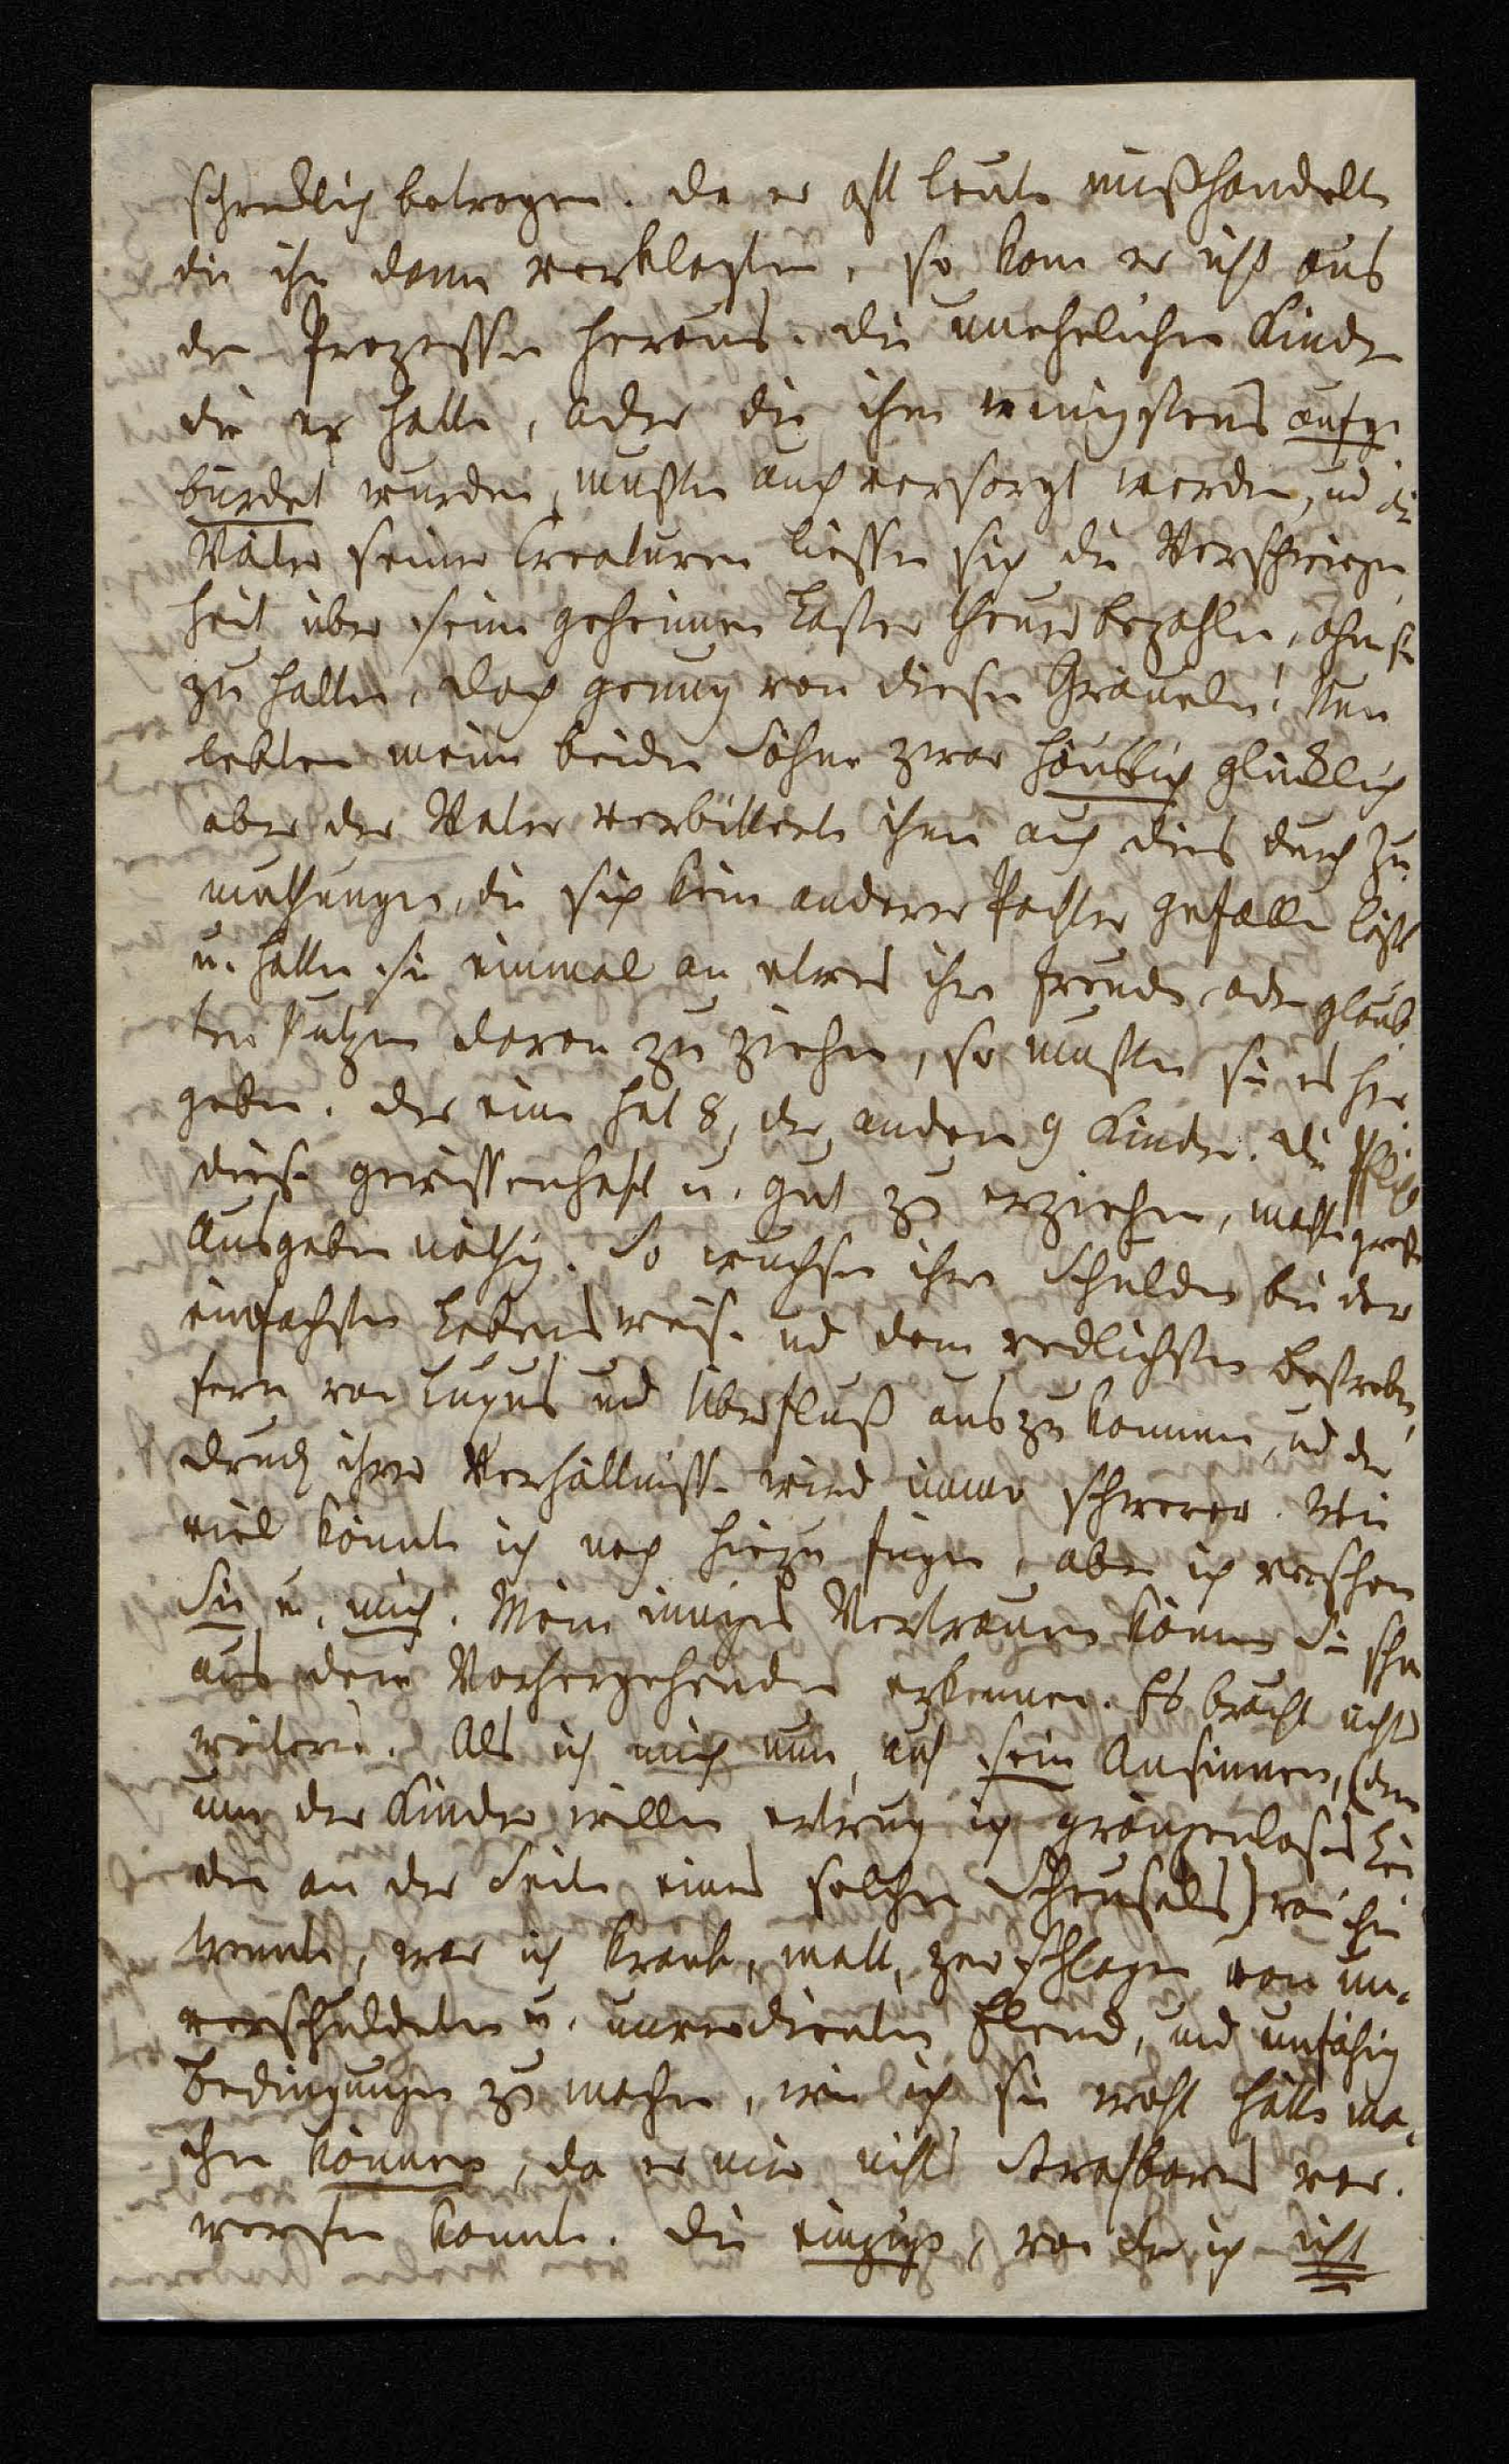 schrecklich betrogen. da er oft Leute mißhandelte
die ihn dann verklagten, so kam er nicht aus
den Prozessen heraus. die unehelichen Kinder
die er hatte, oder die ihm wenigstens aufge
bürdet wurden, mußten auch versorgt werden, und die
Väter seiner Creaturen liessen sich die Verschwiegen
heit über seine geheimen Laster theuer bezahlen, ohne sie
zu halten, doch genug von diesen Gräueln! Nun
lebten meine beiden Söhne zwar häuslich glücklich
aber der Vater verbitterte ihnen auch dies durch Zu
muthungen, die sich kein anderer Pachter gefallen läßt
u. hatten sie einmal an etwas ihre Freude, oder glaub
ten Nutzen davon zu ziehen, so mußten sie es her
geben. der eine hat 8, der andere 9 Kinder. die Pflicht
diese gewissenhaft u. gut zu erziehen, machte große
Ausgaben nöthig. So wuchsen ihre Schulden bei der
einfachsten Lebensweise und dem redlichsten Bestreben,
fern von Luxus und Überfluß auszukommen, und der
Druck ihrer Verhältnisse wird immer schwerer. Wie
viel könnte ich noch hinzu fügen, aber ich verschone
Sie u. mich. Mein inniges Vertrauen können Sie schon
aus dem Vorhergehenden erkennen. Es braucht nichts
weiteres. Als ich mich nun, auf sein Ansinnen, (denn
um der Kinder willen ertrug ich gränzenloses Lei
den an der Seite eines solchen Scheusals) von ihm
trennte, war ich krank, matt, zerschlagen von un-
verschuldeten u. unverdienten Elend, und unfähig
Bedingungen zu machen, wie ich sie wohl hätte ma-
chen können, da er mir nichts Strafbares vor-
werfen konnte. Die einzige, von der ich nicht